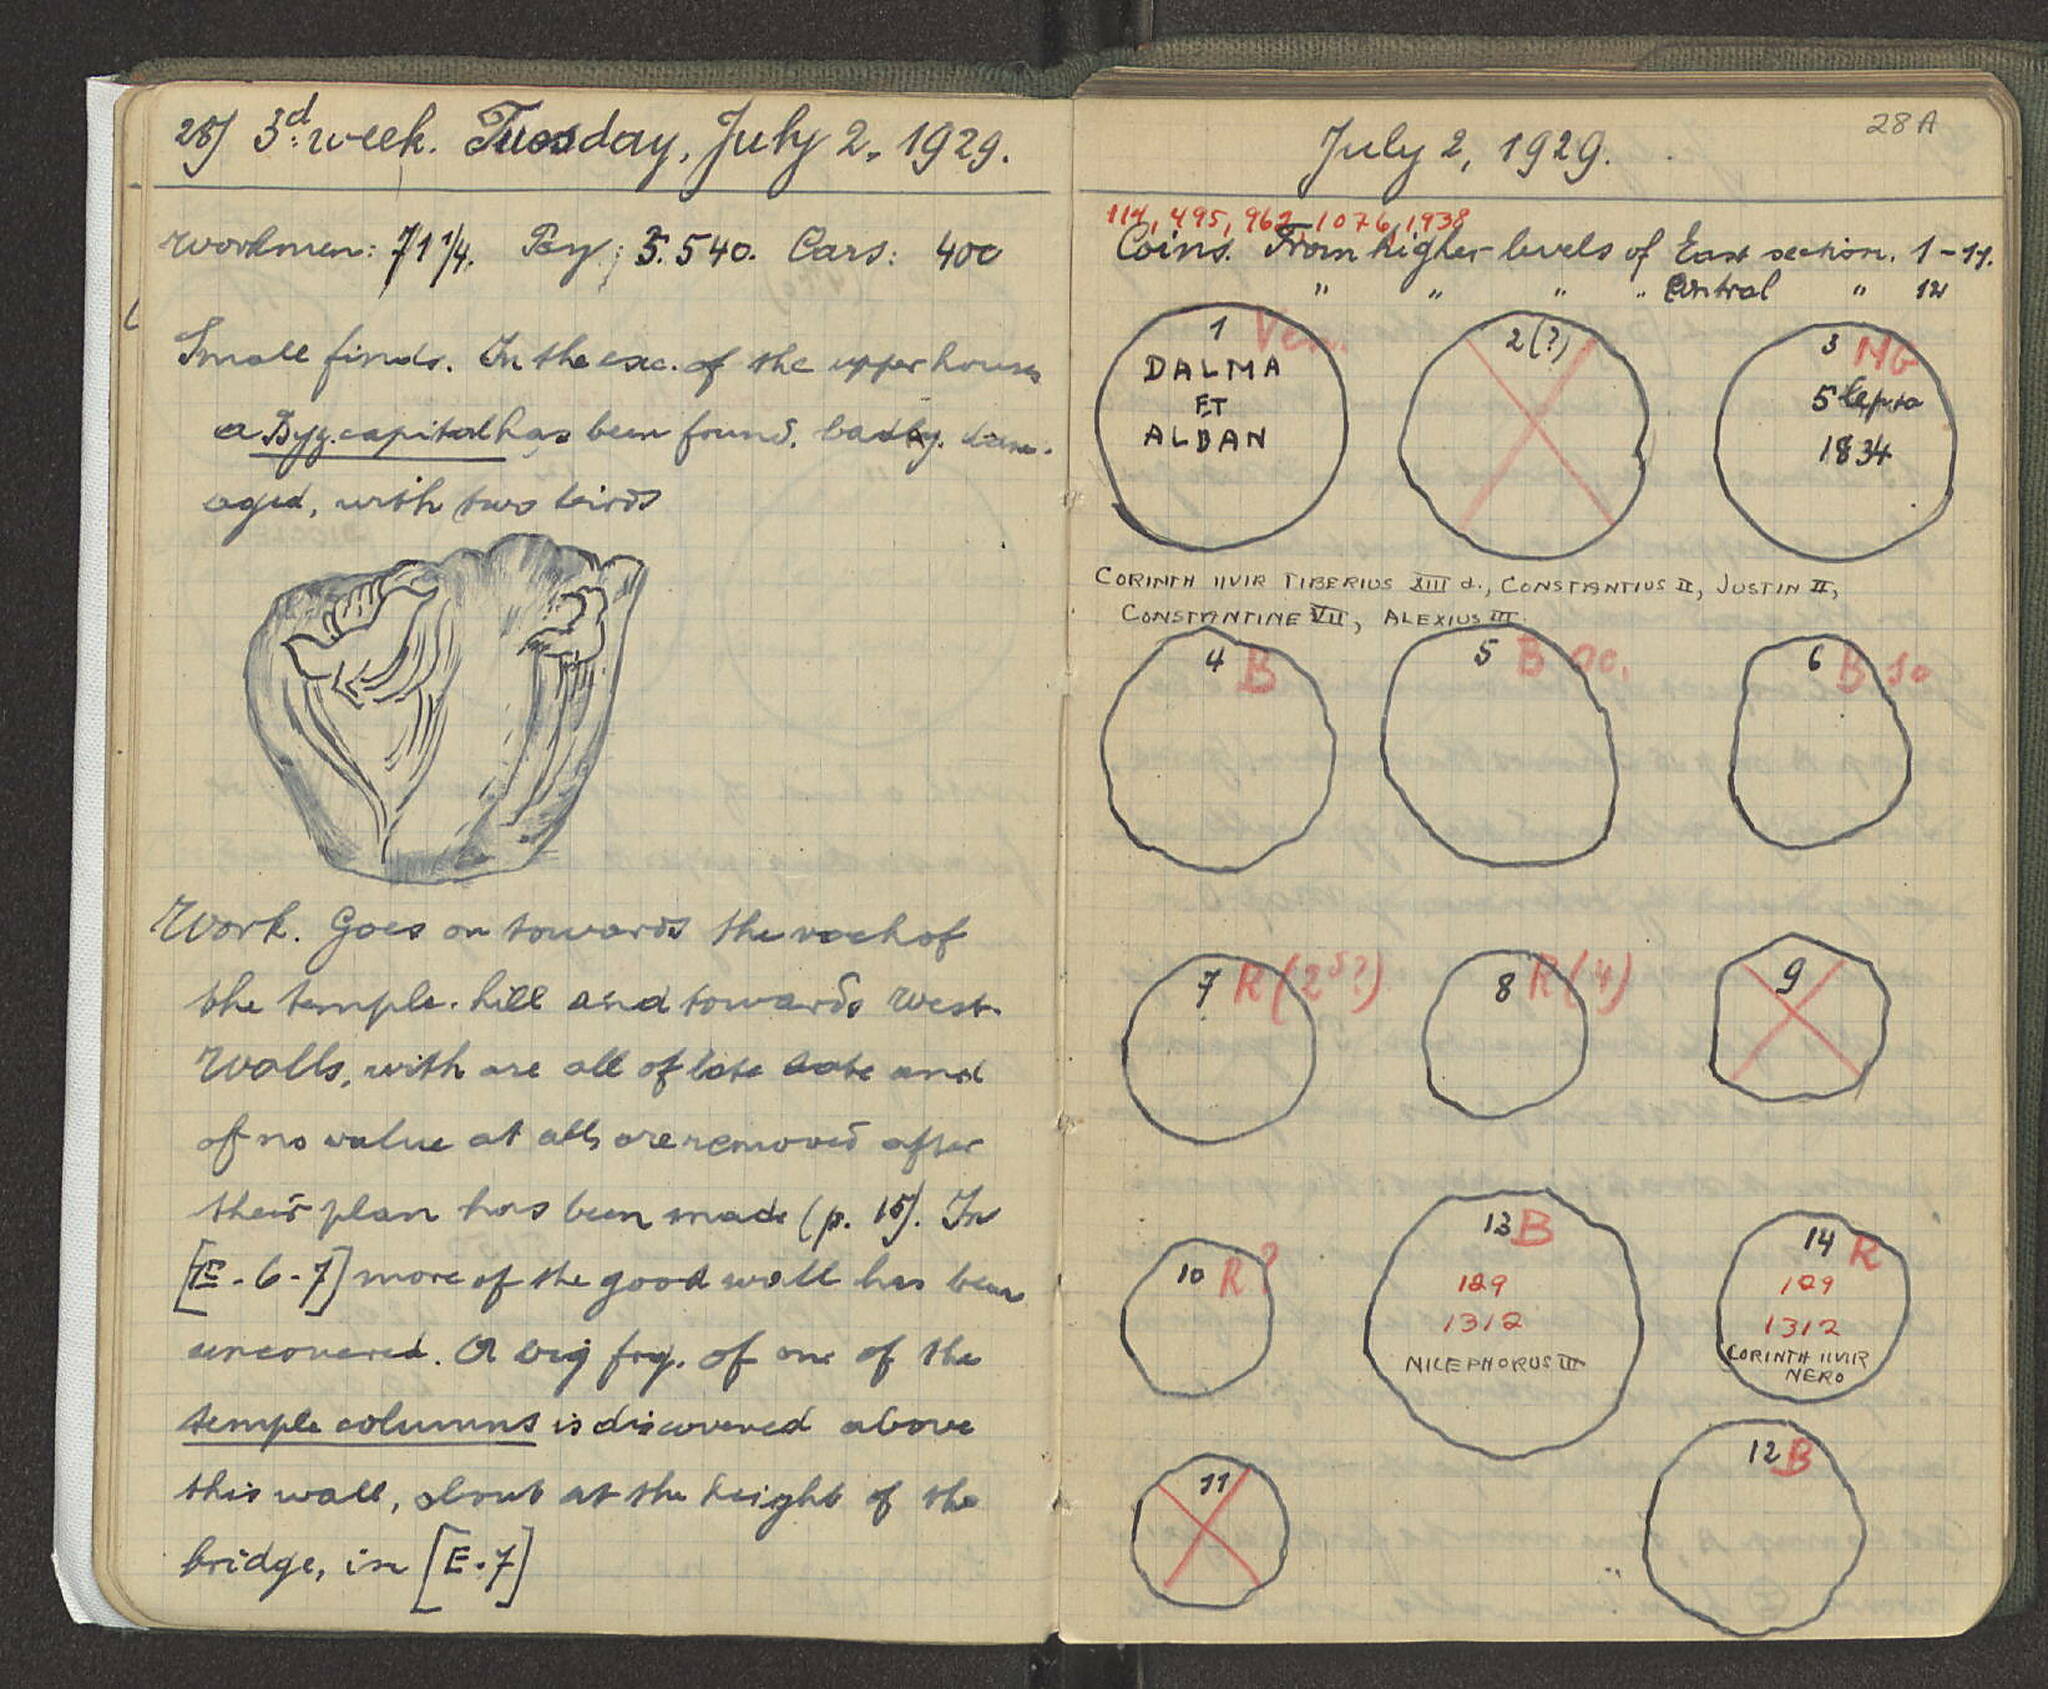 28) 3d week. Tuesday, July 2, 1929.
Workmen: 71 1/4. Pay: 5.540. Cars: 400
Small finds. In the exc. of the upper houses
a Byz. capital has been found, badly dam-
aged, with two birds
Work. Goes on towards the rock of
the temple-hill and towards West.
Walls, with are all of late date and
of no value at all, are removed after
their plan has been made (p. 15). In
[E-6-7] more of the good wall has been
uncovered. A big frg. of one of the
temple columns is discovered above
this wall, about at the height of the
bridge, in [E-7]
28A
July 2, 1929.
114, 495, 962, 1076, 1938
Coins. From higher levels of East section. 1-11.
" " " " Central " 12
1 Ven.
DALMA
ET
ALBAN
2(?)
3 NG
5 lepta
1834
CORINTH IIVIR TIBERIUS XIII d., CONSTANTIUS II, JUSTIN II,
CONSTANTINE VII, ALEXIUS III.
4 B
5 B
6 B
7 R (2⁵?)
8 R (4)
9
10 R?
13 B
129
1312
NICEPHORUS III
14 R
129
1312
CORINTH IIVIR
NERO
11
12 B